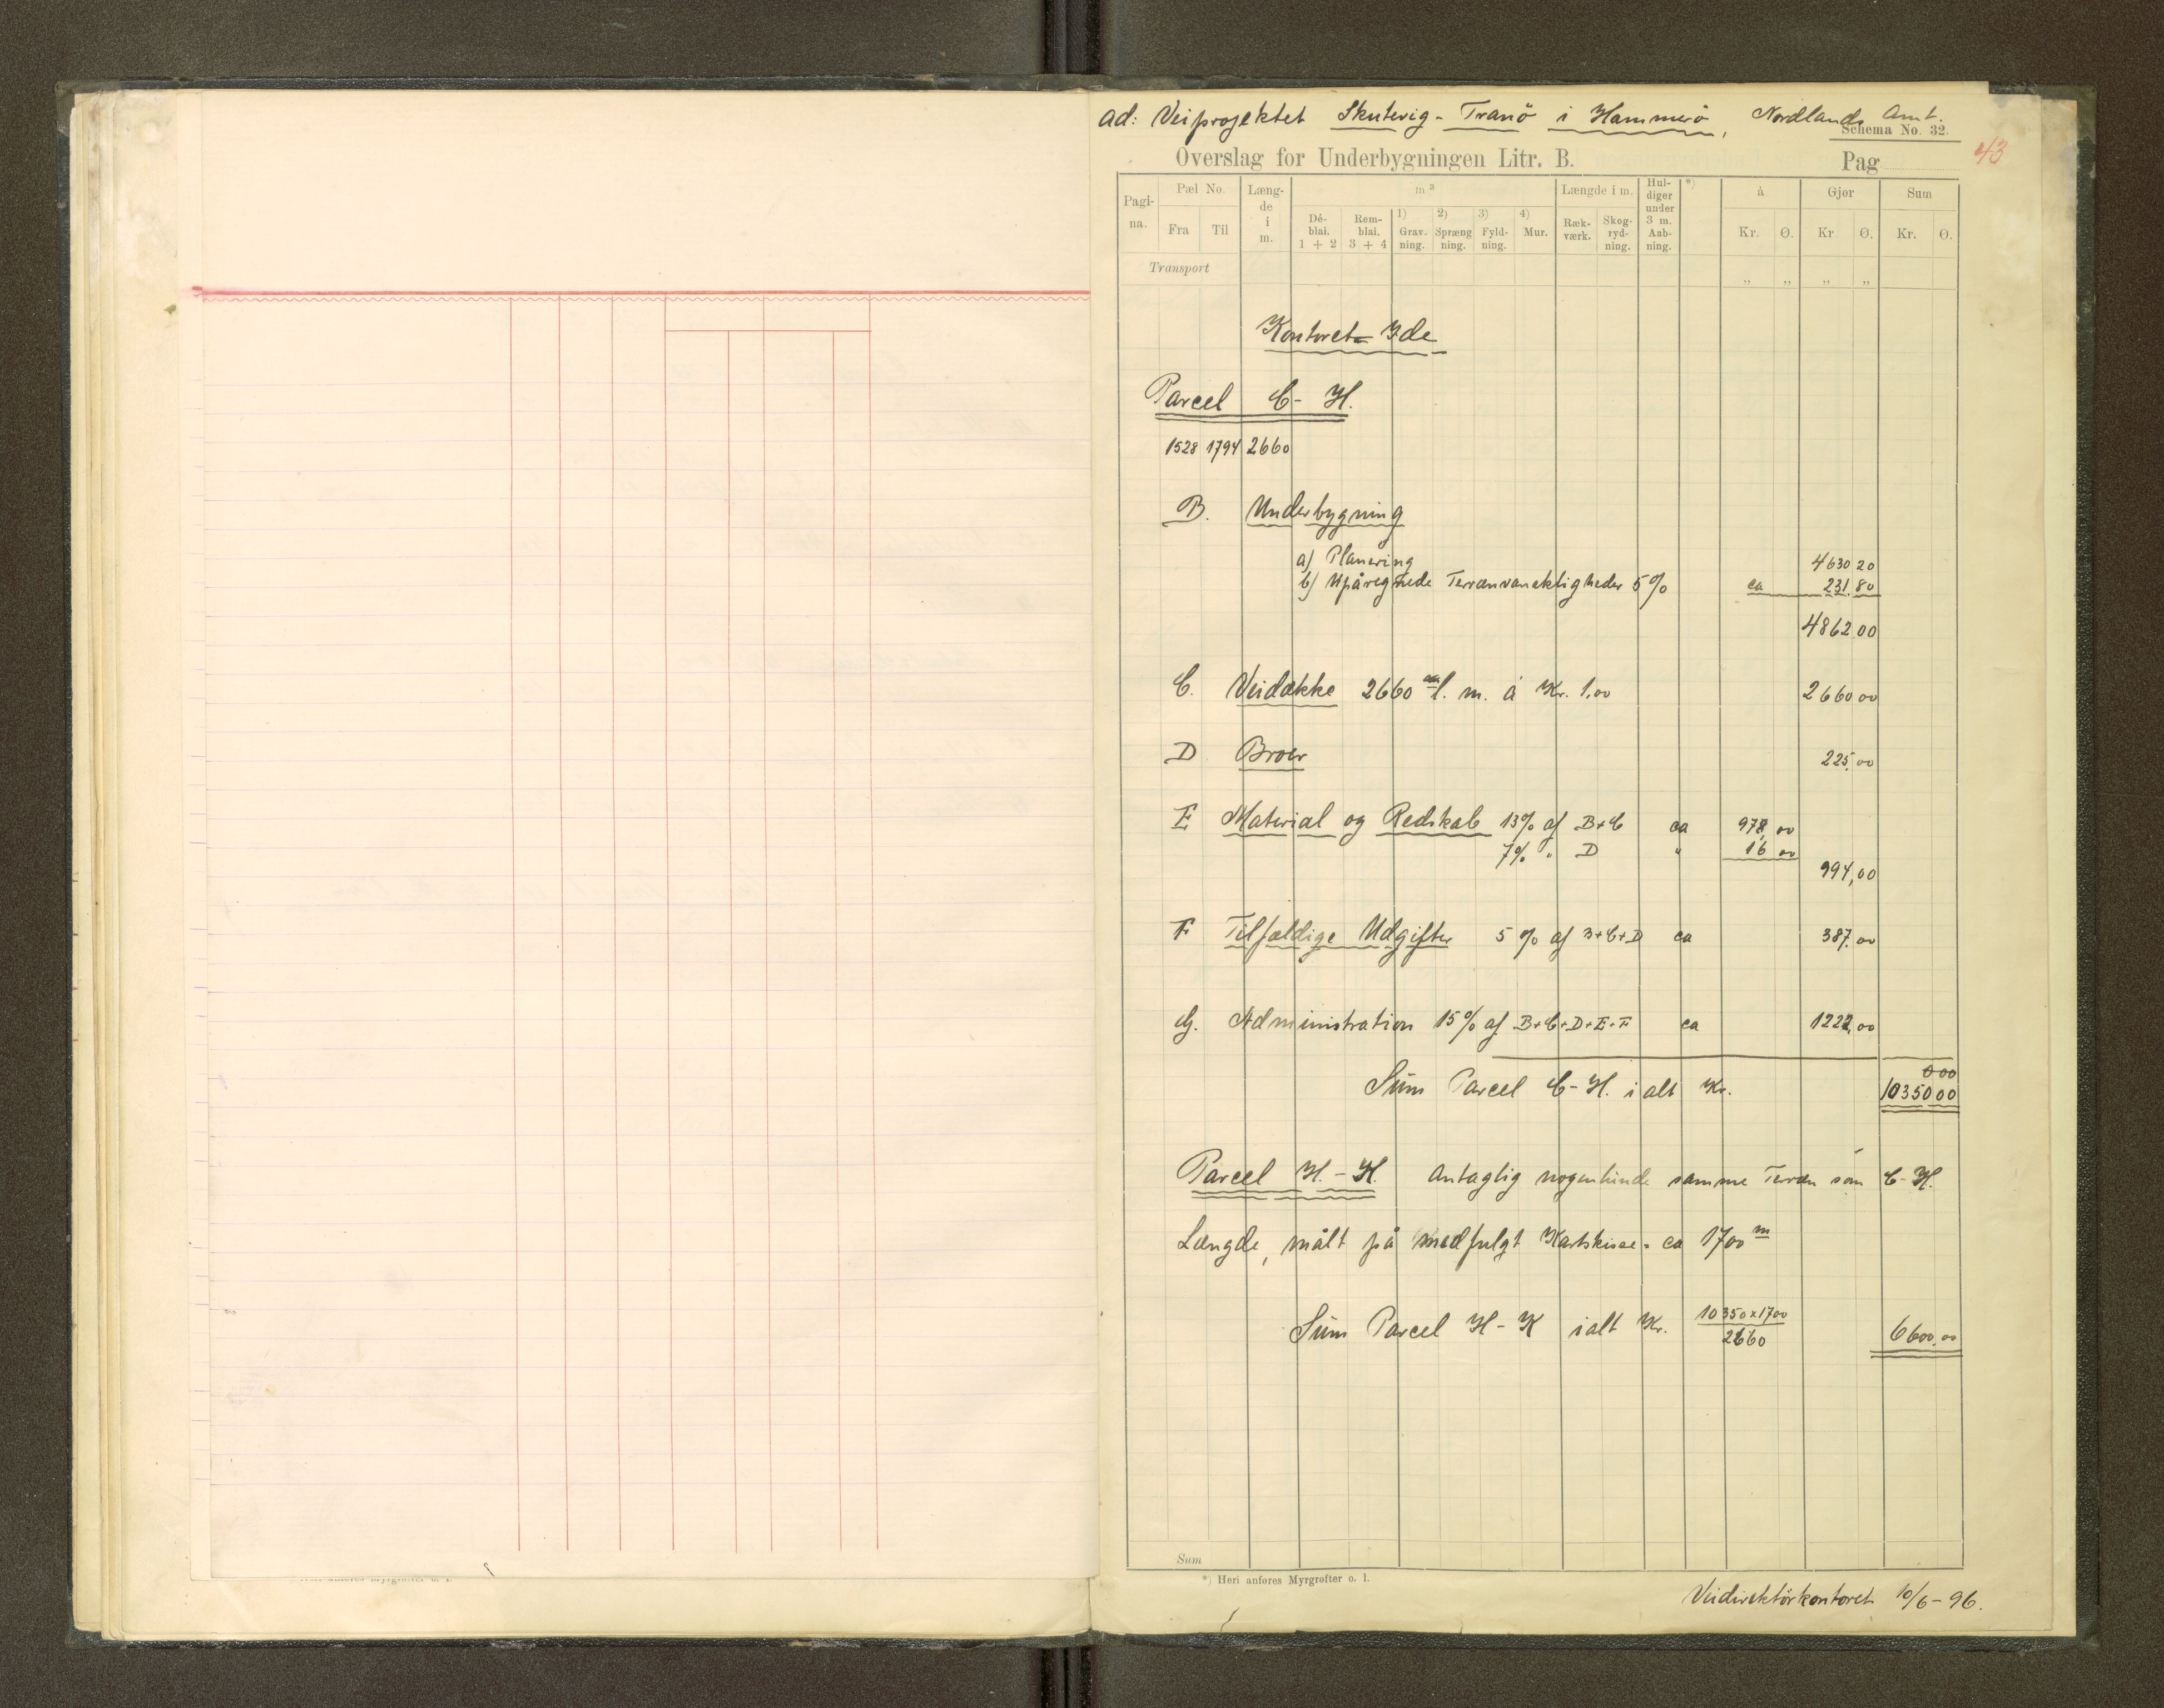 ad: Veiprojektet Skutevig - Tranö i Hammerö, Nordlands Amt.
Schema No. 32.
43
Overslag for Underbygningen Litr. B.
Pag
Pagina.
Pæl No.
Fra Til
Længde i m.
m³
Déblai. 1 + 2
Remblai. 3 + 4
1) Gravning.
2) Sprængning.
3) Fyldning.
4) Mur.
Længde i m.
Rækværk.
Skogrydning.
Huldiger under 3 m. Aabning.
*)
à
Kr. Ø.
Gjør
Kr Ø.
Sum
Kr. Ø.
Transport
„ „ „ „
Kontoret - Ide
Parcel C - H.
1528 1794 2660
B. Underbygning
a) Planering 4630 20
b) Upåregnede Terrænvanskligheder 5% ca 231.80
4862.00
C. Veidække 2660 l. m. á Kr. 1.00 2660 00
D Broer 225,00
E Material og Redskab 13% af B+C ca 978,00
7% " D " 16 00
994,00
F Tilfældige Udgifter 5 % af B+C+D ca 387.00
G. Administration 15% af B+C+D+E+F ca 1222,00
Sum Parcel C-H. i alt Kr. 10350 00
Parcel H. - K. Antaglig nogenlunde samme Terræn som C-H.
Længde, målt på medfulgt Kartskisse = ca 1700 m
Sum Parcel H - K ialt Kr. 10350x1700
2660
6600.00
Sum
*) Heri anføres Myrgrøfter o. l.
Veidirektörkontoret 10/6-96.